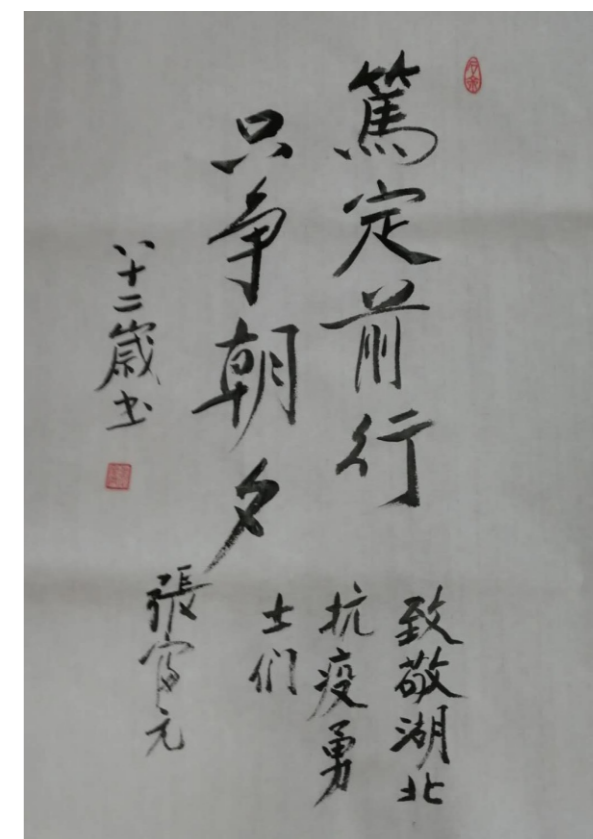 篤定前行
只争朝夕
致敬湖北
抗疫勇
士们
張富元
八十二歲书